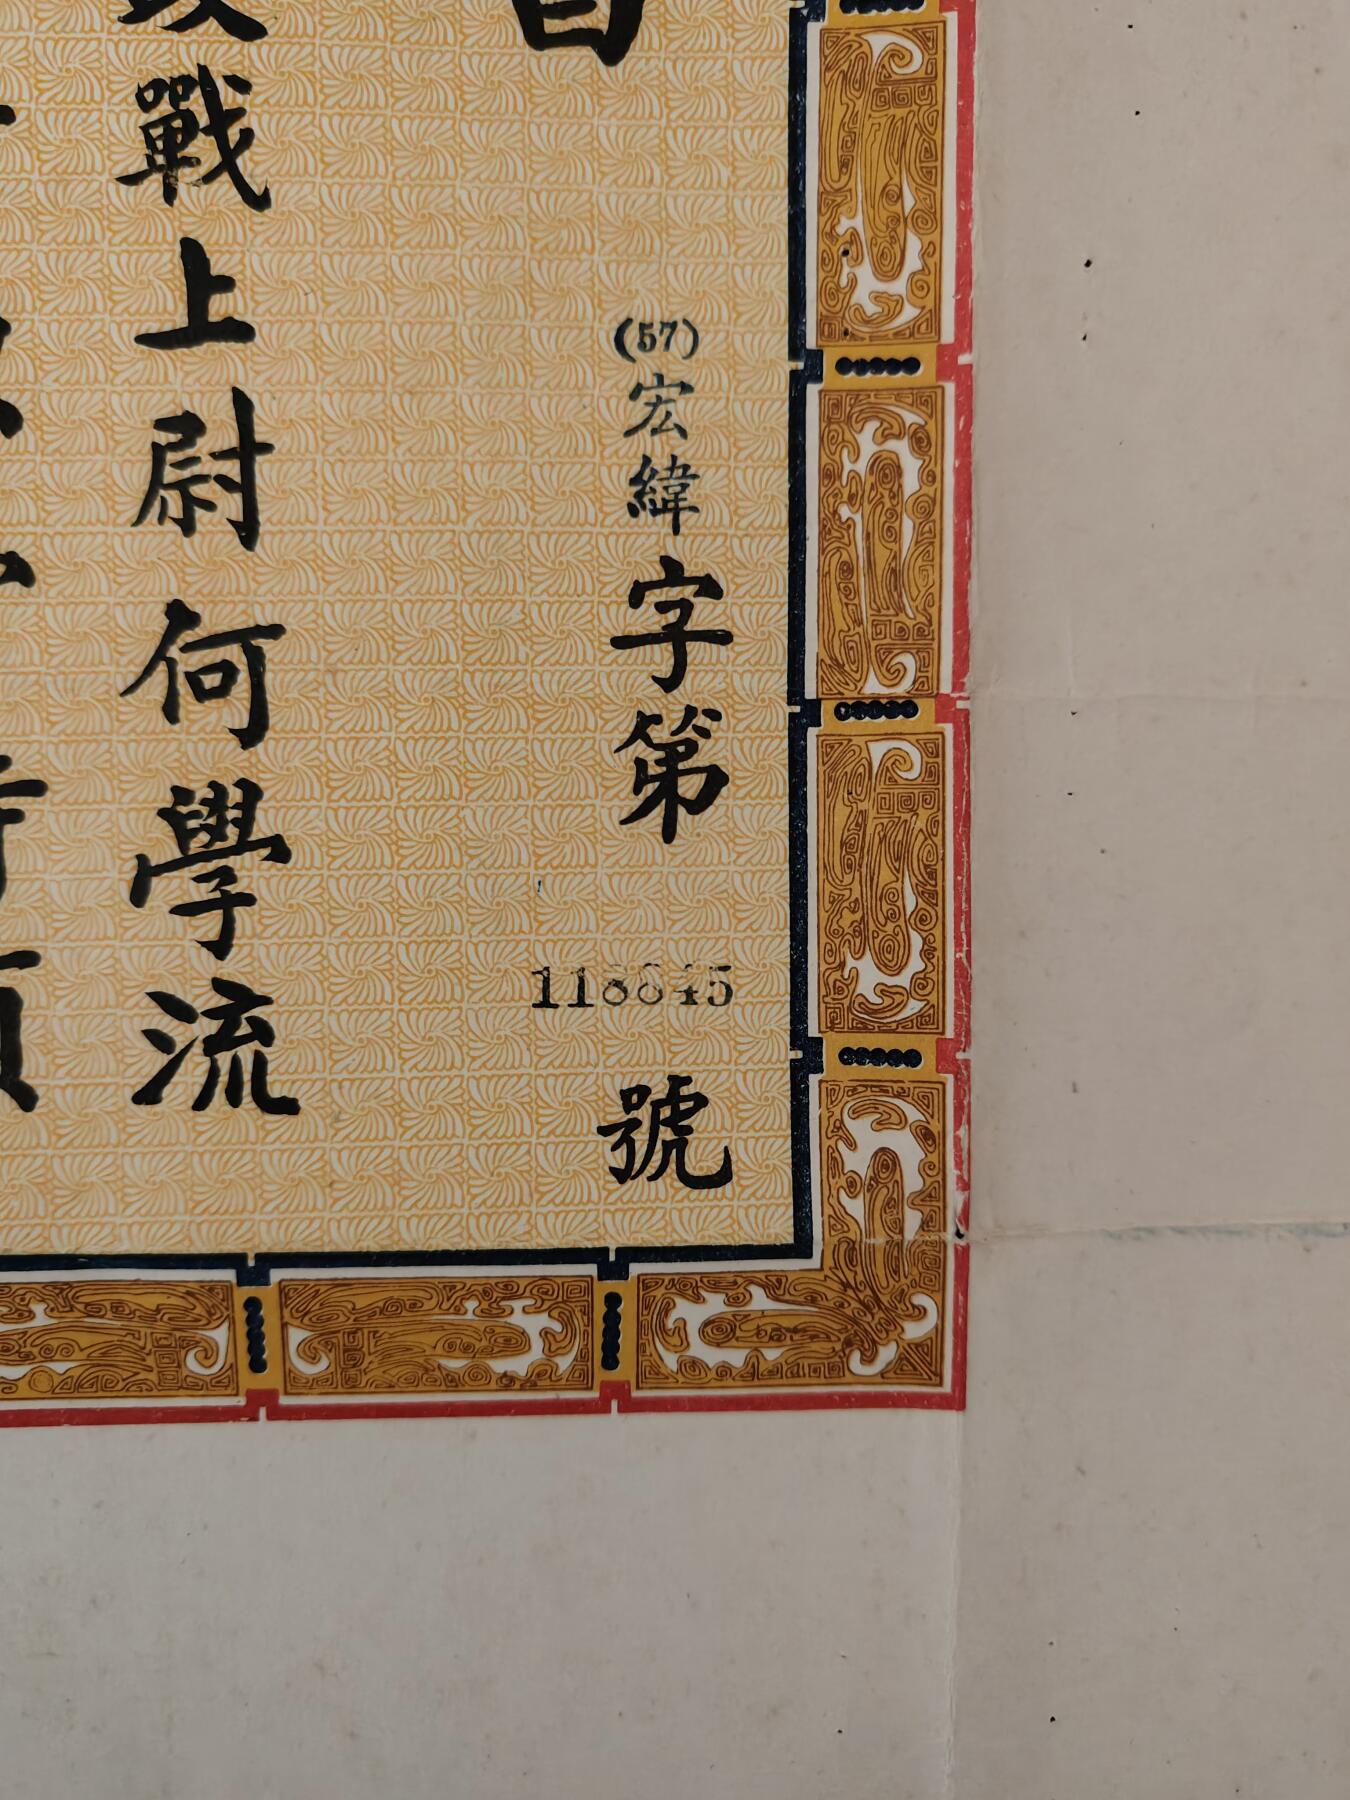 (57)宏緯字第118645號
戰上尉何學流